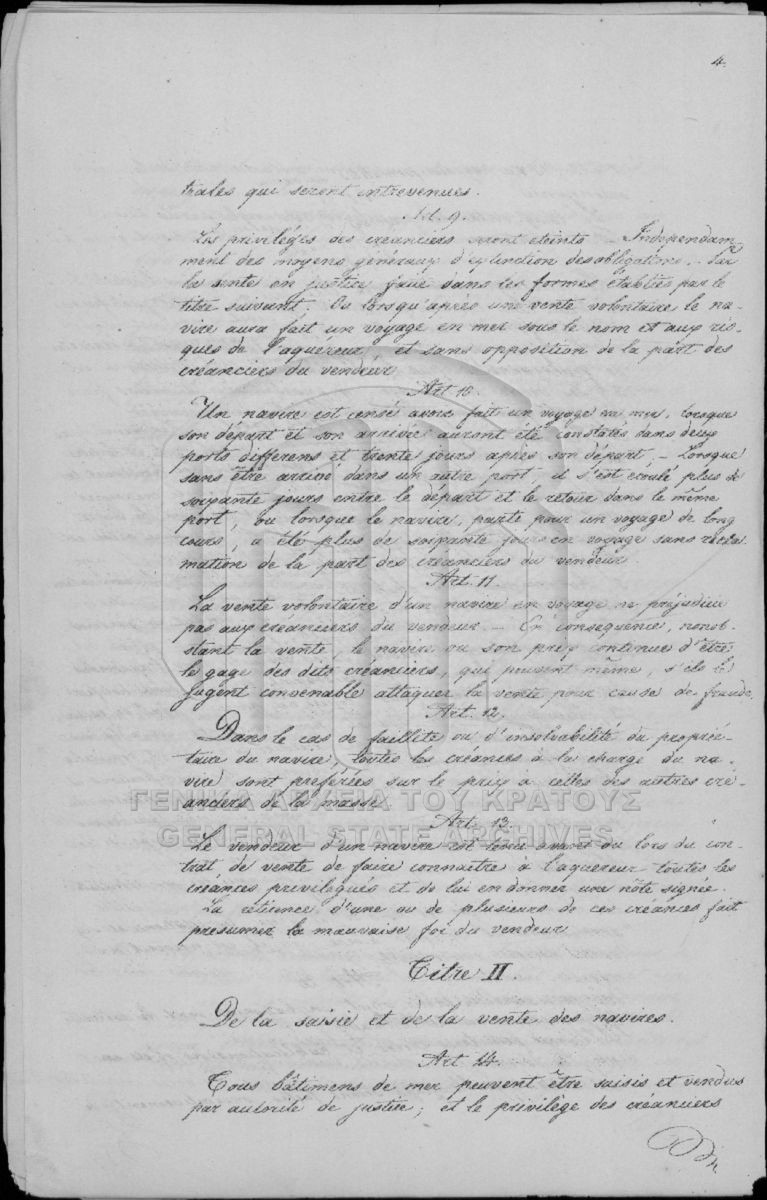 4.
trales qui seront intrevenues.
Art. 9.
Les privilèges des créanciers seront eteints – Independam
ment des moyens généraux d'extinction des obligations, – Par
la vente en justice faite dans les formes établies par le
titre suivant. Ou lorsqu'après une vente volontaire le na-
vire aura fait un voyage en mer sous le nom et aux ris-
ques de l'aquéreur, et sans opposition de la part des
créanciers du vendeur
Art 10.
Un navire est censé avoir fait un voyage en mer, lorsque
son départ et son arrivée auront été constatés dans deux
ports differens et trente jours après son départ, – Lorsque
sans être arrivé dans un autre port il s'est écoulé plus de
soixante jours entre le départ et le retour dans le même
port, ou lorsque le navire, parti pour un voyage de long
cours, a été plus de soixante jours en voyage sans récla
mation de la part des créanciers du vendeur.
Art. 11.
La vente volontaire d'un navire en voyage ne préjudicie
pas aux créanciers du vendeur – En conséquence, nonob-
stant la vente, le navire ou son prix continue d'être
le gage des dits créanciers, qui peuvent même, s'ils le
jugent convenable attaquer la vente pour cause de fraude.
Art. 12.
Dans le cas de faillite ou d'insolvabilité du proprié-
taire du navire, toutes les créances à la charge du na-
vire sont préférées sur le prix à celles des autres cré-
anciers de la masse
ΓΕΝΙΚΑ ΑΡΧΕΙΑ ΤΟΥ ΚΡΑΤΟΥΣ
GENERAL STATE ARCHIVES
Art. 13.
Le vendeur d'un navire est tenu avant ou lors du con-
trat de vente de faire connaitre à l'aquereur toutes les
créances privilegiés et de lui en donner une nôte signée.
La réticence d'une ou de plusieurs de ces créances fait
présumer la mauvaise foi du vendeur
Titre II.
De la saisie et de la vente des navires.
Art 14.
Tous bâtimens de mer peuvent être saisis et vendus
par autorité de justice; et le privilège des créanciers